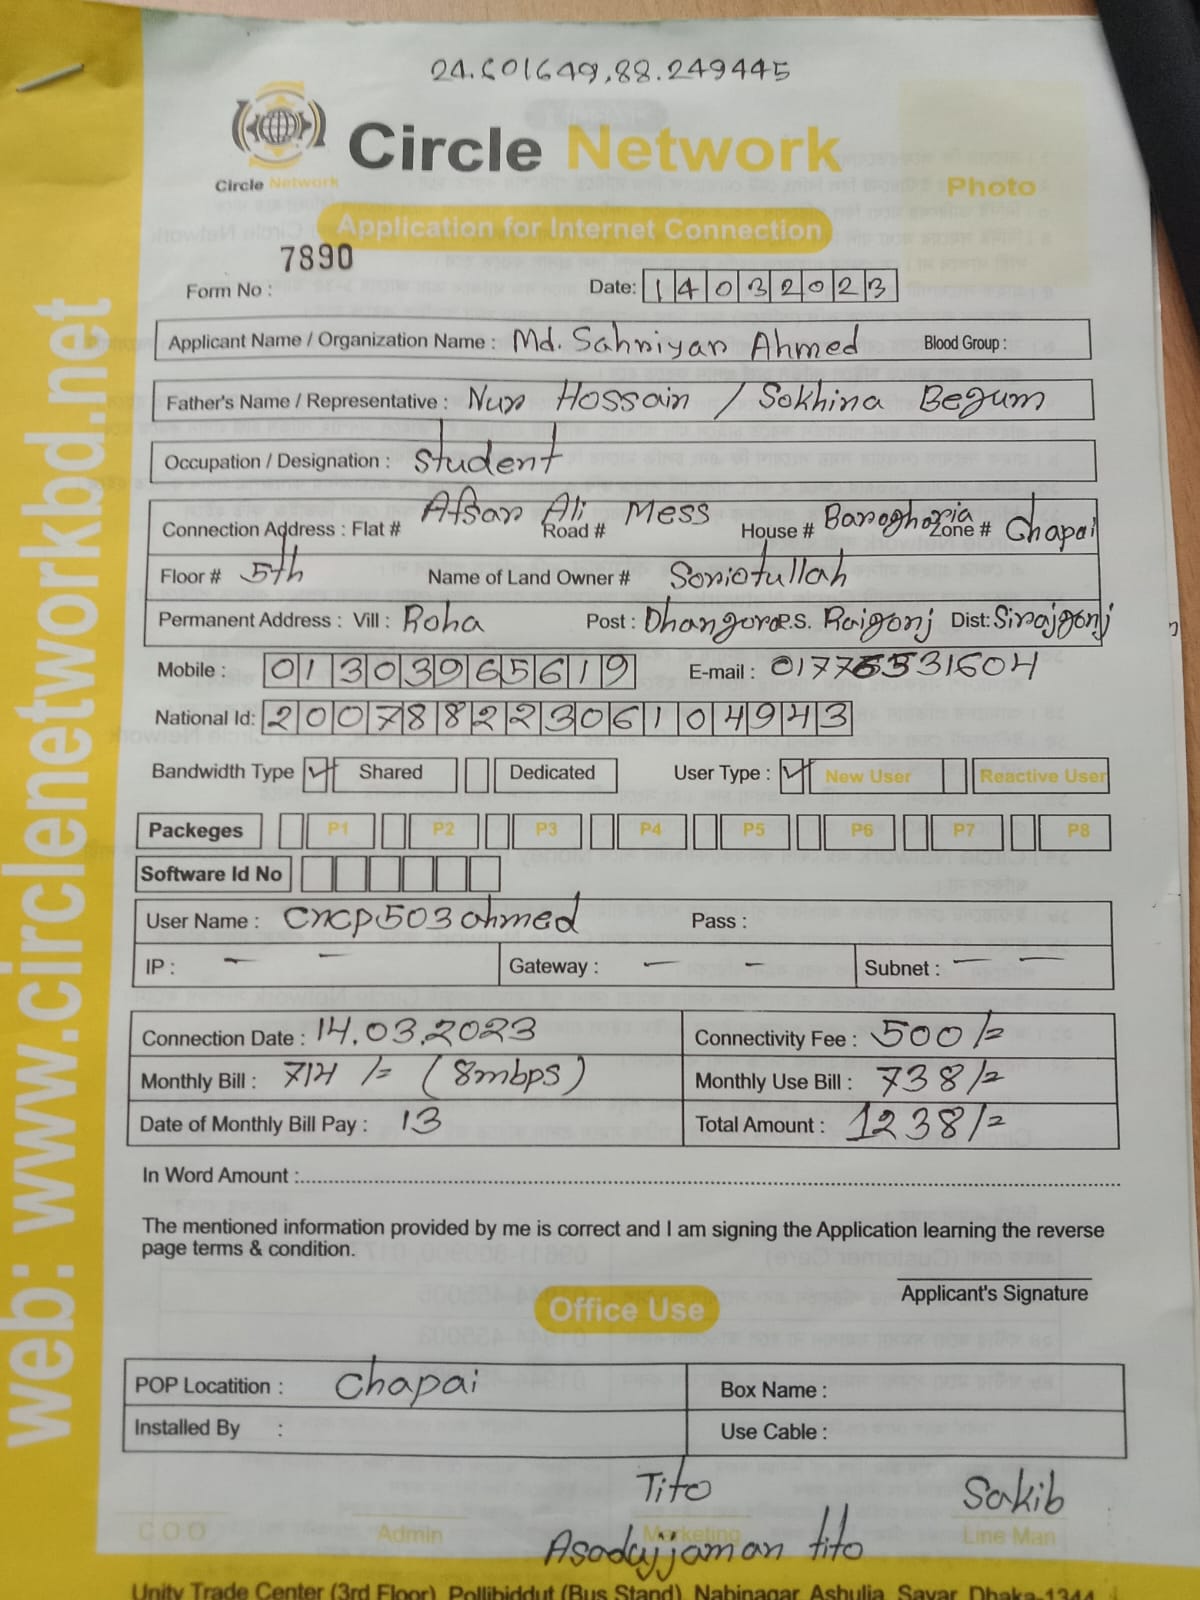 24.601649,88.249445
Circle Network
Circle Network
Photo
Application for Internet Connection
7890
Form No :
Date: 14032023
Applicant Name / Organization Name : Md. Sahriyar Ahmed Blood Group :
Father's Name / Representative : Nur Hossain / Sokhina Begum
Occupation / Designation : Student
Connection Address : Flat # Afsar Ali Mess Road # House # Baroghoria Zone # Chapai
Floor # 5th Name of Land Owner # Soriotullah
Permanent Address : Vill : Roha Post : Dhangora P.S. Raigonj Dist: Sirajgonj
Mobile : 01303965619 E-mail : 01776531604
National Id: 20078822306104943
Bandwidth Type Shared Dedicated User Type : New User Reactive User
Packeges P1 P2 P3 P4 P5 P6 P7 P8
Software Id No
User Name : cncp503ahmed Pass :
IP : - - Gateway : - - Subnet : - -
Connection Date : 14.03.2023 Connectivity Fee : 500/=
Monthly Bill : 714 /= (8mbps) Monthly Use Bill : 738/=
Date of Monthly Bill Pay : 13 Total Amount : 1238/=
In Word Amount :
The mentioned information provided by me is correct and I am signing the Application learning the reverse
page terms & condition.
Applicant's Signature
Office Use
POP Locatition : Chapai Box Name :
Installed By : Use Cable :
Tito Sakib
C.O.O Admin Marketing Line Man
Asadujjaman tito
Unity Trade Center (3rd Floor), Pollibiddut (Bus Stand), Nabinagar, Ashulia, Savar, Dhaka-1344
web: www.circlenetworkbd.net